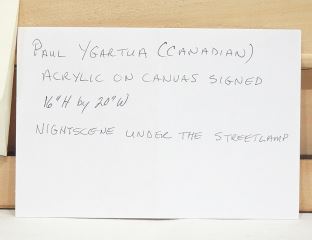 PAUL YGARTUA (CANADIAN)
ACRYLIC ON CANVAS SIGNED
16"H by 20"W
NIGHTSCENE UNDER THE STREETLAMP